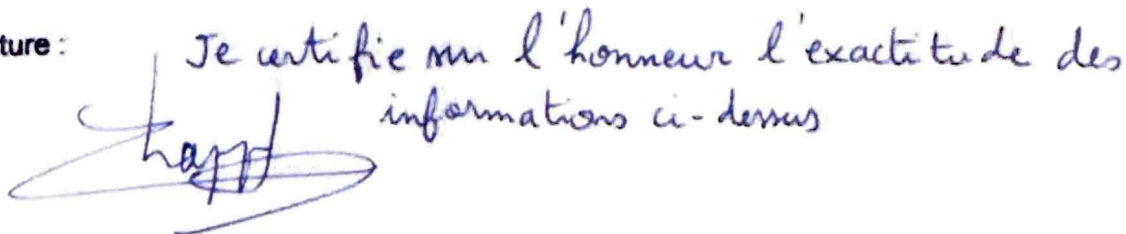 ture : Je certifie sur l'honneur l'exactitude des
informations ci-dessus